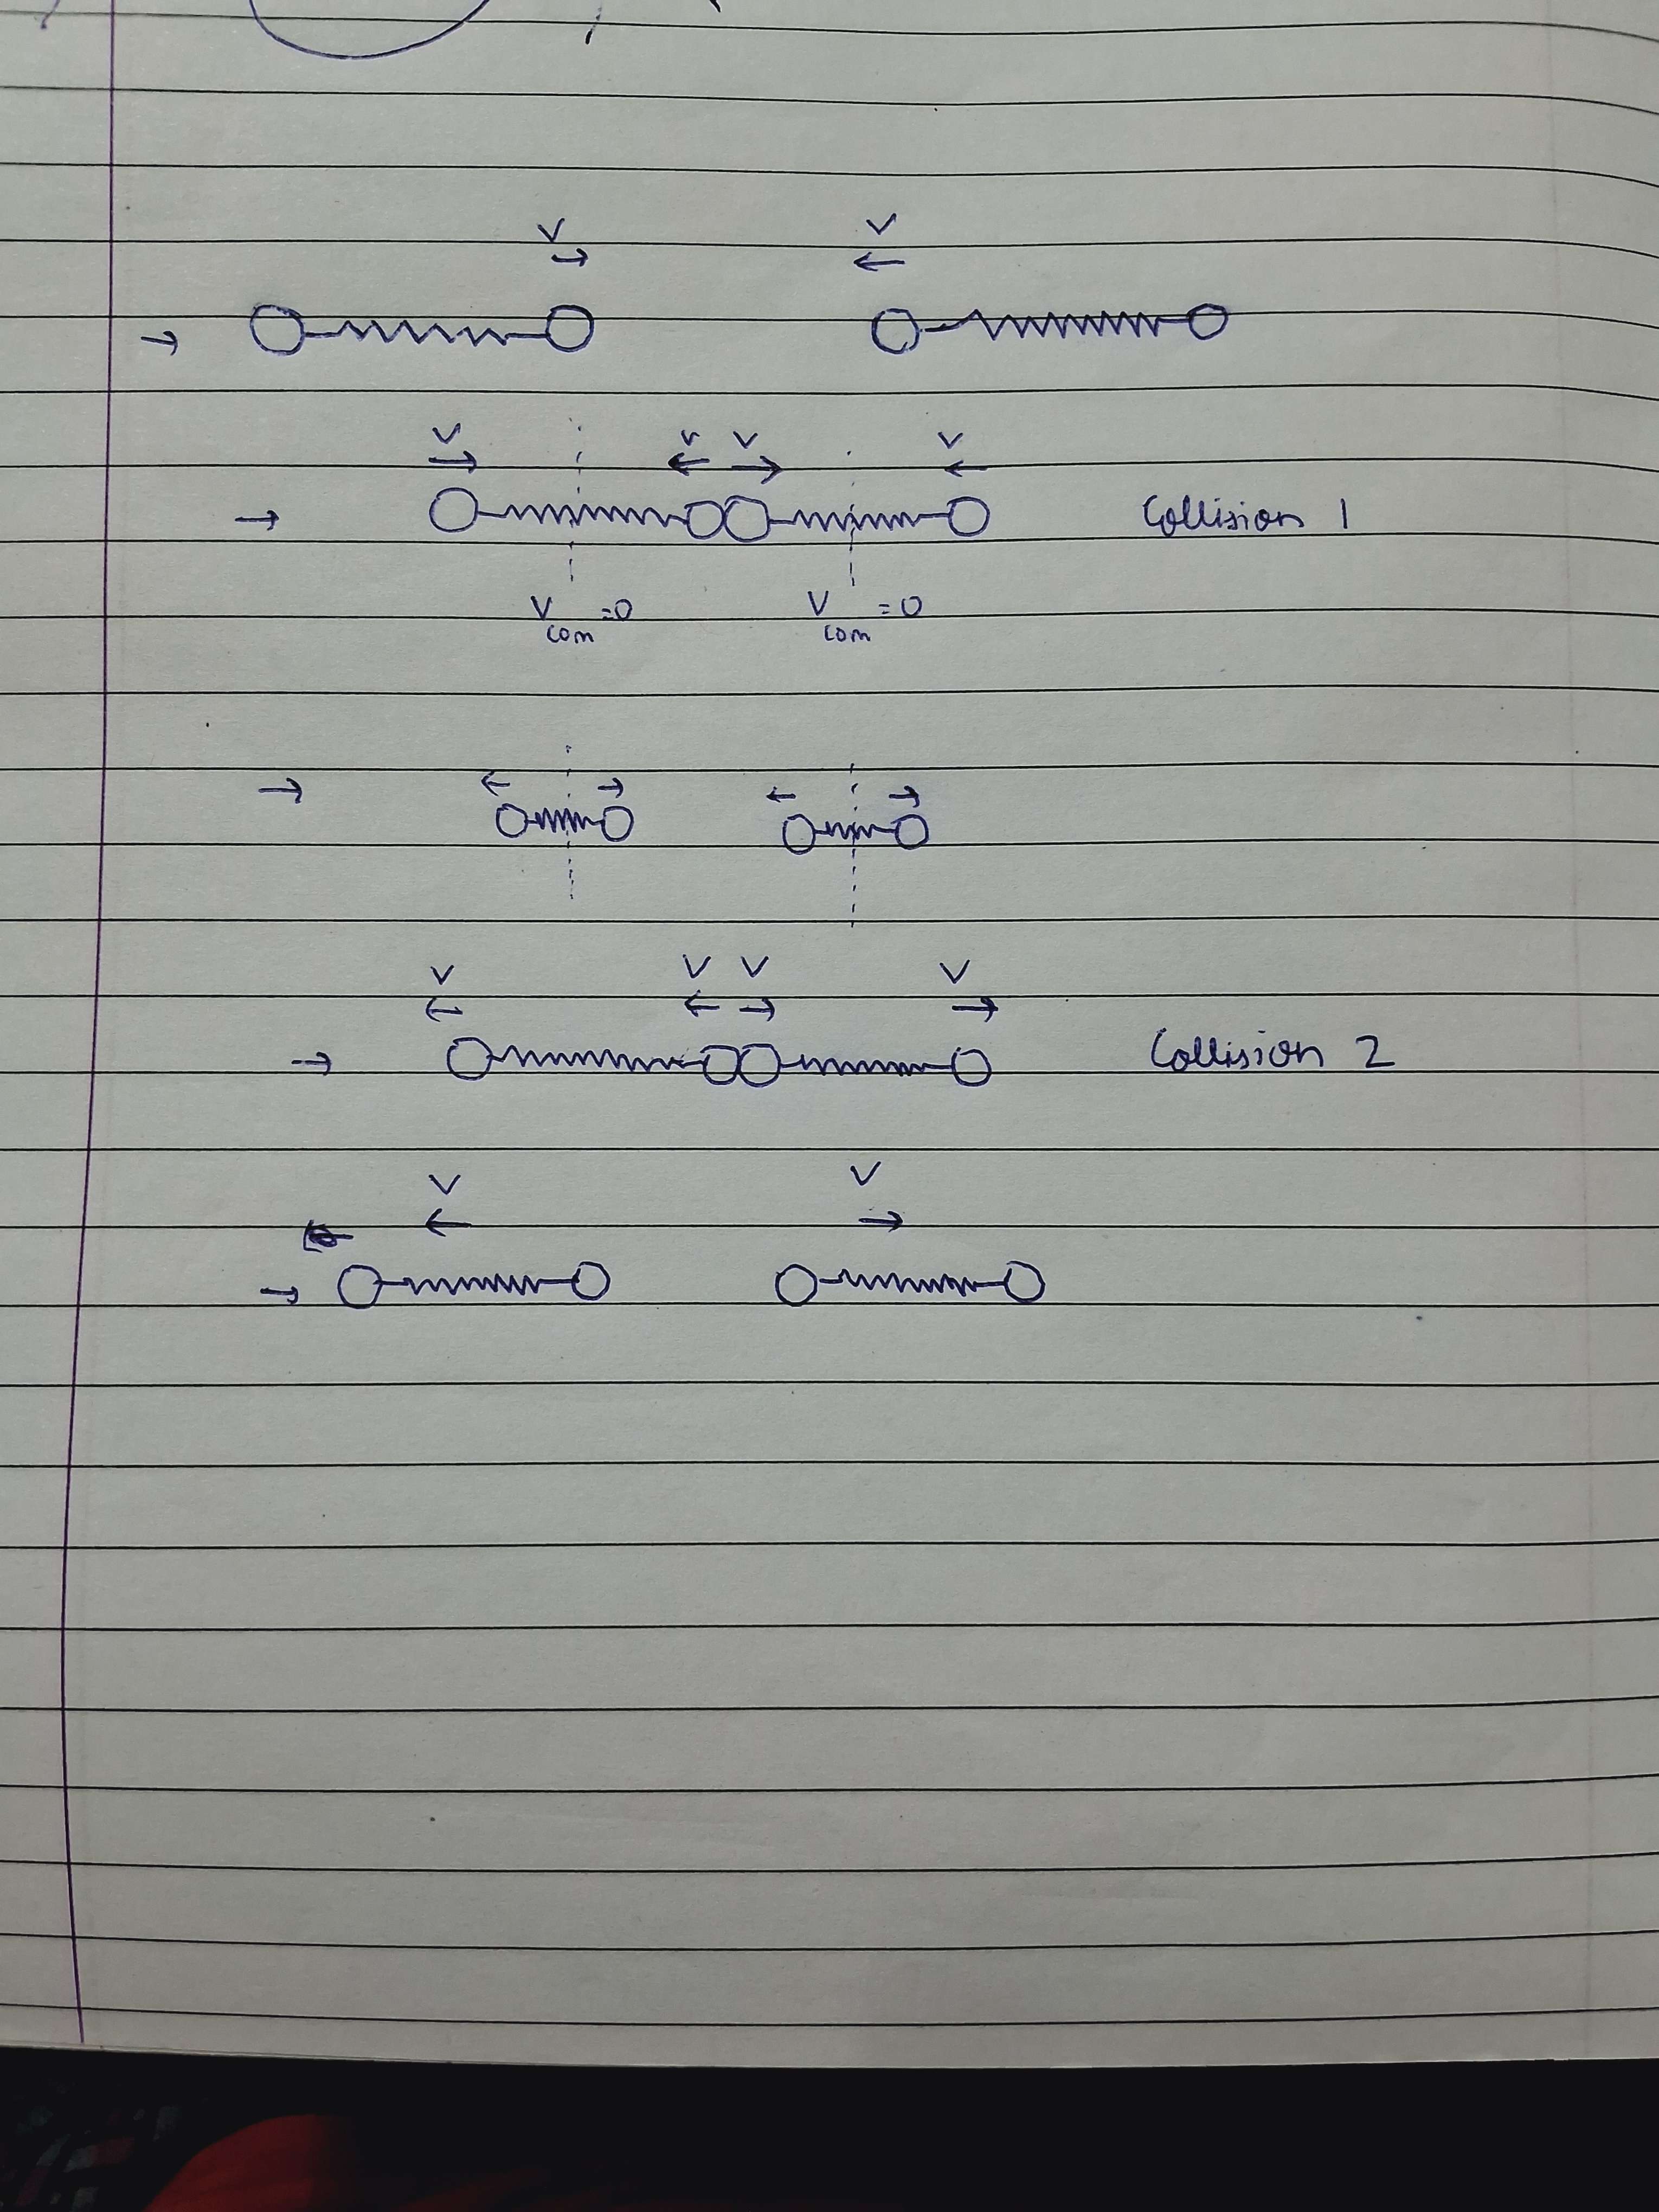 V V
→ ←
→
V V V V
→ ← → ←
→ Collision 1
V com =0 V com =0
← → ← →
→
V V V V
← ← → →
→ Collision 2
V V
← →
→